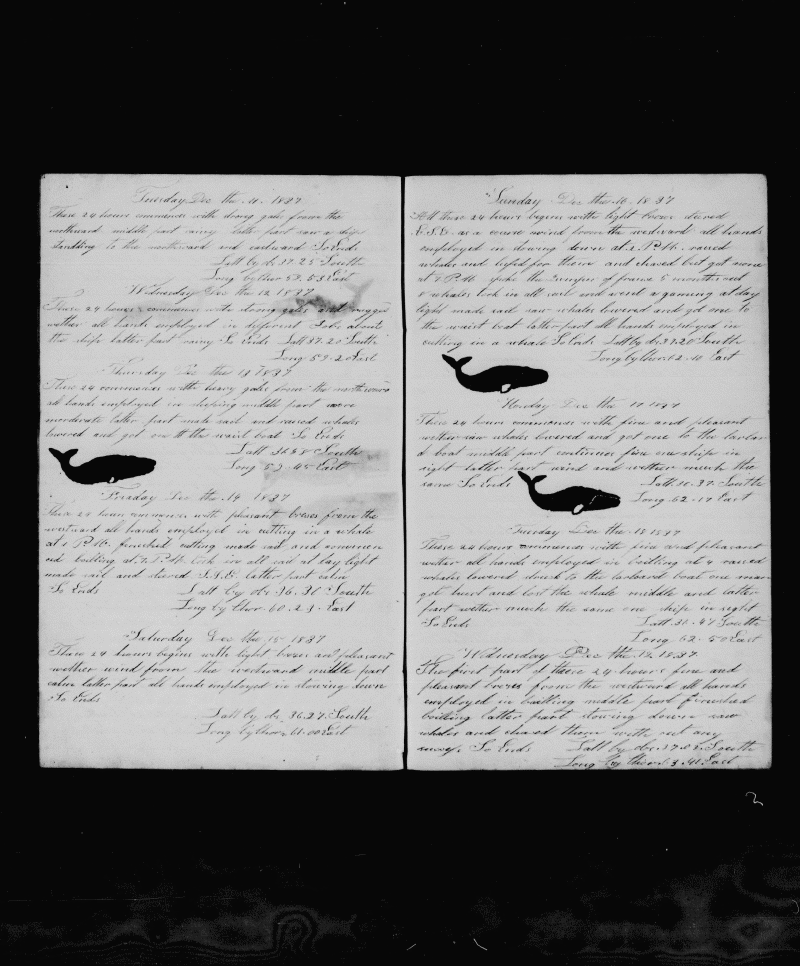 Tuesday Dec the 11 1837
These 24 hours commences with strong gale from the
northward middle part rainy latter part saw a ship
standing to the northward and eastward So Ends
Latt by ds 37.25 South
Long by Chor 59.53 East
Wednesday Dec the 12 1837
These 24 hours commences with strong gales and rugged
wether all hands employed in different Jobs about
the ship latter part rainy So Ends Latt 37.20 South
Long 59.20 East
Thursday Dec the 13 1837
These 24 commences with heavy gales from the northward
all hands employed in middle part more
moderate latter part made sail and raised whales
lowered and got one the waist boat So Ends
Latt 36.58 South
Long 59.45 East
Dec the 14 1837
These 24 hours commences with pleasant breses from the
westward all hands employed in cutting in a whale
at 1 P.M. finished cutting made sail and commen
ced boiling at 7 P.M. took in all sail at daylight
made sail and steered latter part calm
So Ends Latt by ds 36.30 South
Long by Chor 60.23 East
Saturday Dec the 15 1837
These 24 hours begins with light breses and pleasant
wether wind from the westward middle part
calm latter part all hands employed in stowing down
So Ends
Latt by ds 36.27 South
Long by Chor 61.00 East
Sunday Dec the 16 1837
All these 24 hours begins with light breses steered
as a course wind from the westward all hands
employed in stowing down at 2 P.M. raised
whales and lufed for them and chased but got none
at 7 P.M. spoke the of france 5 months out
8 whales took in all sail and went a gaming at day
light made sail saw whales lowered and got one to
the waist boat latter part all hands employed in
cutting in a whale So Ends Latt by ds 37.20 South
Long by Chor 62.10 East
Monday Dec the 17 1837
These 24 hours commences with fine and pleasant
wether saw whales lowered and got one to the larboar
d boat middle part continues fine one ship in
sight latter part wind and wether much the
same So Ends Latt 36.37 South
Long 62.17 East
Tuesday Dec the 18 1837
These 24 hours commences with fine and pleasant
wether all hands employed in boiling at 4 raised
whales lowered struck to the larboard boat one man
got hurt and lost the whale middle and latter
part wether much the same one ship in sight
So Ends Latt 36.47 South
Long 62.50 East
Wednesday Dec the 19 1837
The first part of these 24 hours fine and
pleasant breses from the westward all hands
employed in boiling middle part finished
boiling latter part stowing down saw
whales and chased them with out any
So Ends Latt by ds 37.02 South
Long by Chor 63.41 East
2